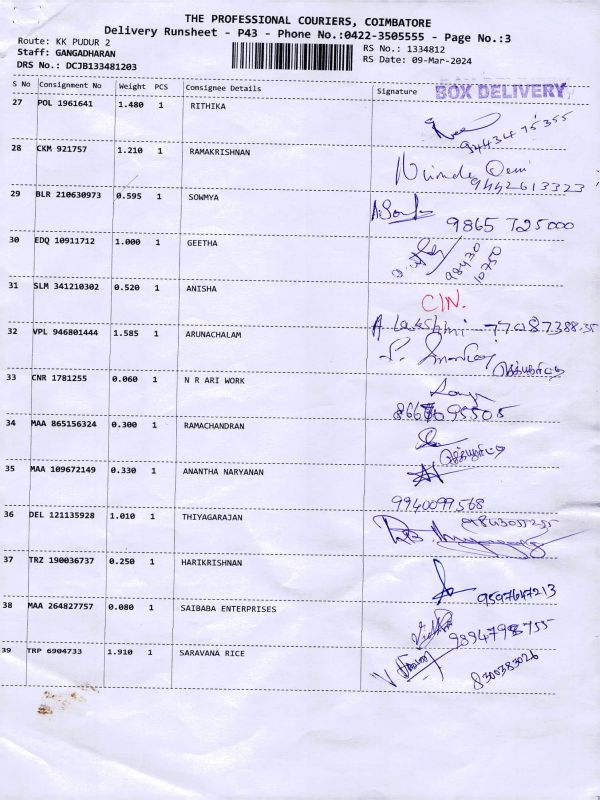 THE PROFESSIONAL COURIERS, COIMBATORE
Delivery Runsheet - P43 - Phone No.:0422-3505555 - Page No.:3
Route: KK PUDUR 2
RS No.: 1334812
Staff: GANGADHARAN
RS Date: 09-Mar-2024
DRS No.: DCJB133481203
S No Consignment No Weight PCS Consignee Details Signature BOX DELIVERY
27 POL 1961641 1.480 1 RITHIKA
94434 75355
28 CKM 921757 1.210 1 RAMAKRISHNAN
9442613323
29 BLR 210630973 0.595 1 SOWMYA
9865 725000
30 EDQ 10911712 1.000 1 GEETHA
98430
10750
31 SLM 341210302 0.520 1 ANISHA
32 VPL 946801444 1.585 1 ARUNACHALAM
33 CNR 1781255 0.060 1 N R ARI WORK
34 MAA 865156324 0.300 1 RAMACHANDRAN
35 MAA 109672149 0.330 1 ANANTHA NARYANAN
9940099568
36 DEL 121135928 1.010 1 THIYAGARAJAN
9843055255
37 TRZ 190036737 0.250 1 HARIKRISHNAN
9597647213
38 MAA 264827757 0.080 1 SAIBABA ENTERPRISES
9894798755
39 TRP 6904733 1.910 1 SARAVANA RICE
8300383026